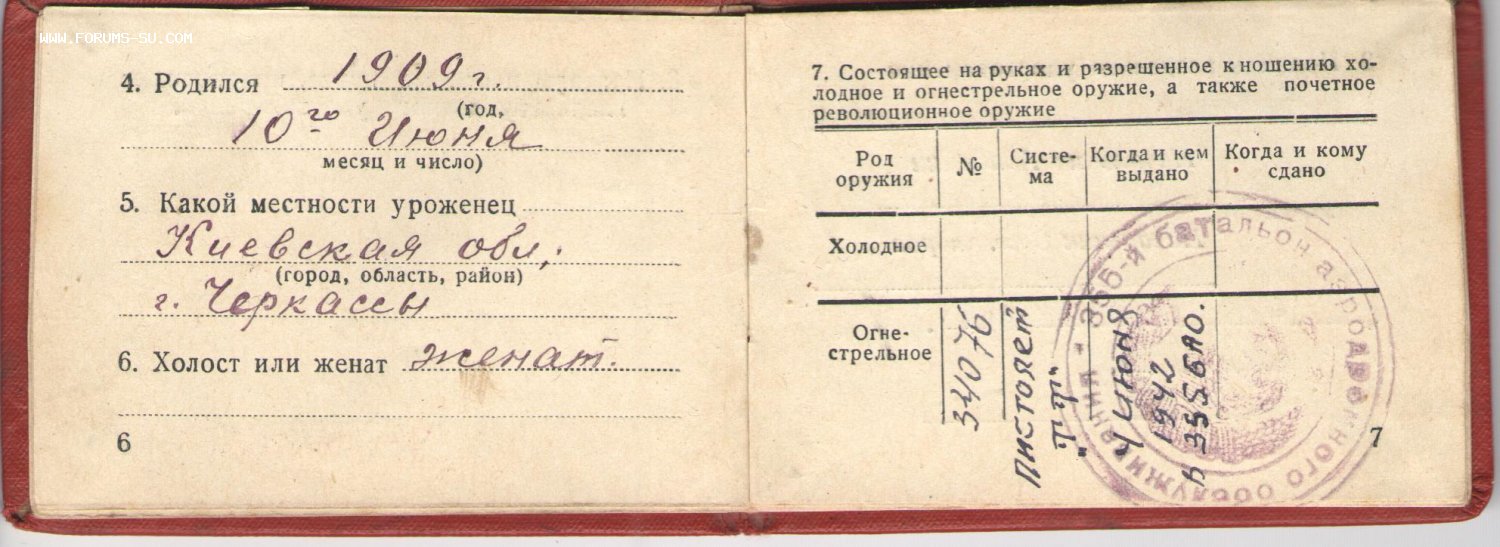 WWW.FORUMS-SU.COM
4. Родился 1909 г.
(год,
10го Июня
месяц и число)
5. Какой местности уроженец
Киевская обл,
(город, область, район)
г. Черкассы
6. Холост или женат женат.
6
7. Состоящее на руках и разрешенное к ношению хо-
лодное и огнестрельное оружие, а также почетное
революционное оружие
Род оружия № Систе-ма Когда и кем выдано Когда и кому сдано
Холодное
Огне-
стрельное
34076
Пистолет
"тт"
4 июня
1942
в 355 БАО.
355-й батальон аэродромного обслуживания
7